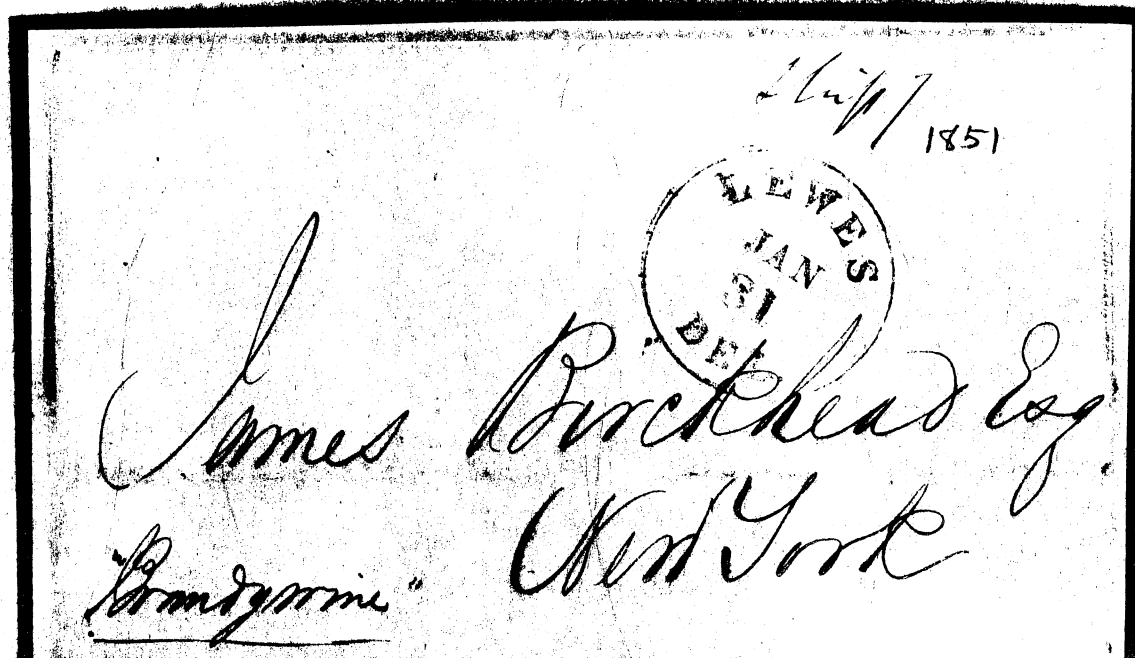 Ship 7
1851
LEWES
JAN
31
DEL
James Birckhead Esq
New York
"Brandywine"